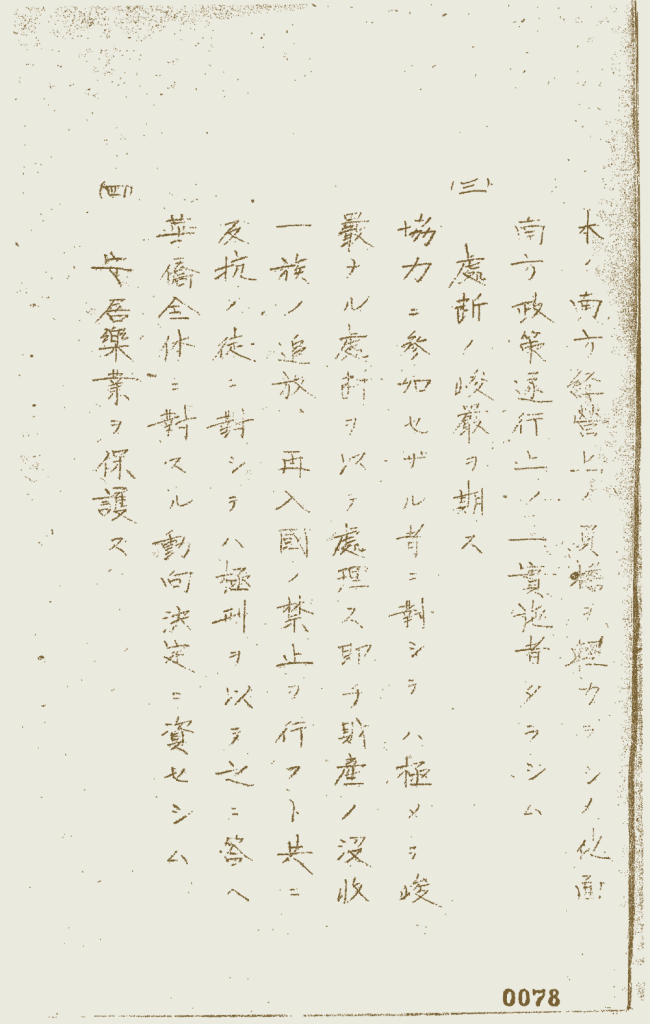 本ノ南方経營上ノ負擔ヲ軽カラシメ他面
南方政策遂行上ノ一實施者タラシム
(三)處断ノ峻嚴ヲ期ス
協力ニ参加セザル者ニ對シテハ極メテ峻
嚴ナル處断ヲ以テ處理ス即チ財産ノ没收
一族ノ追放、再入國ノ禁止ヲ行フト共ニ
反抗ノ徒ニ對シテハ極刑ヲ以テ之ニ答ヘ
華僑全体ニ對スル動向決定ニ資セシム
(四)安居樂業ヲ保護ス
0078